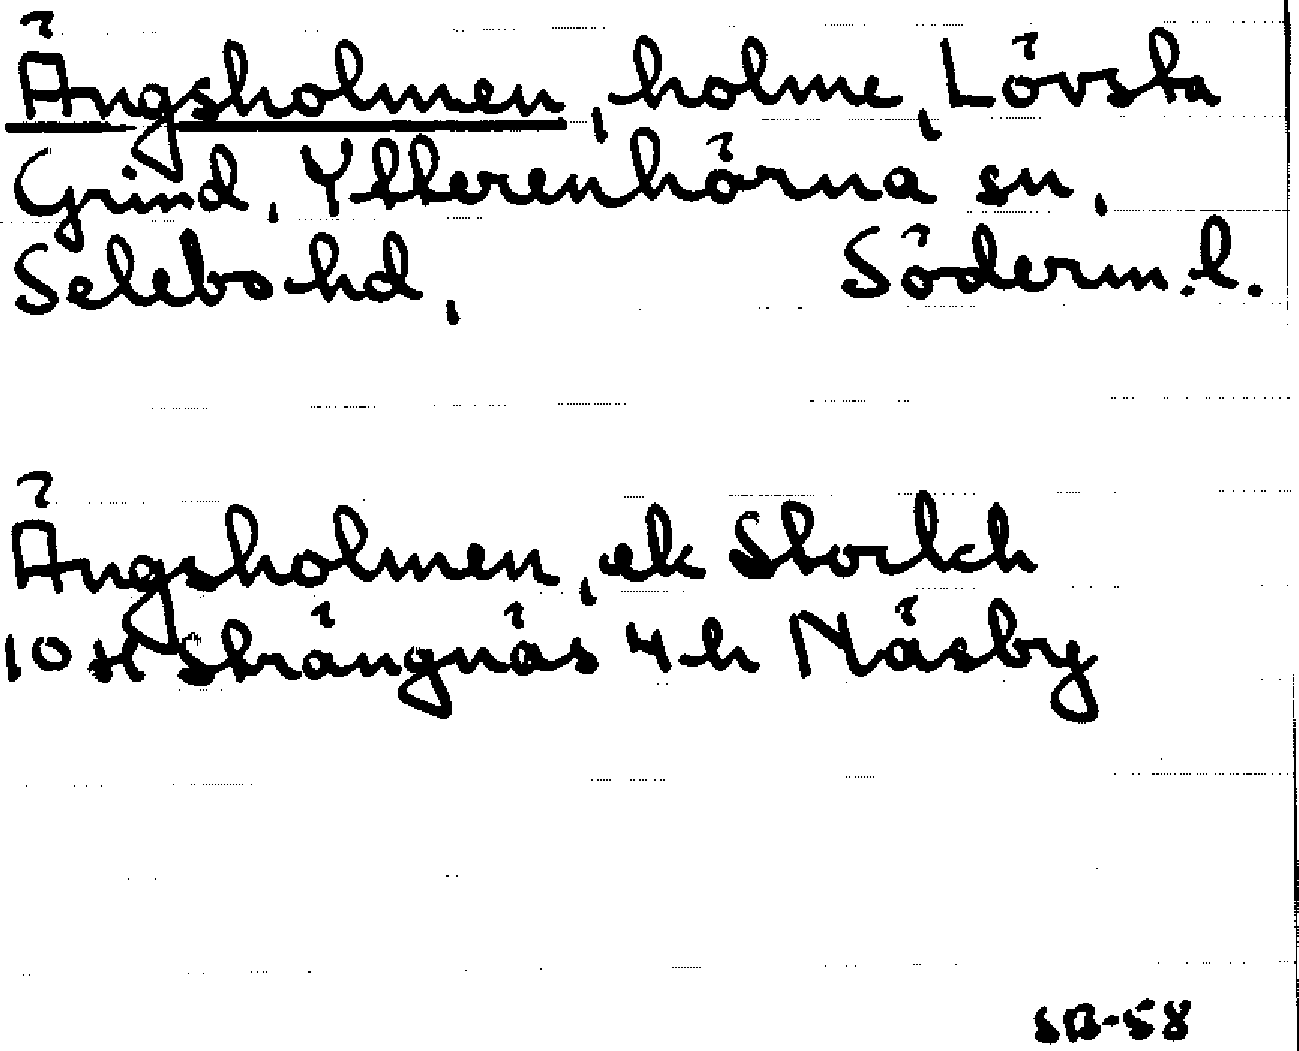 Ängsholmen, holme, Lövsta
Grind, Ytterenhörna sn,
Selebo hd, Söderm. l.
Ängsholmen, ek Stockh
10 H Strängnäs 4 h Näsby
SB-58